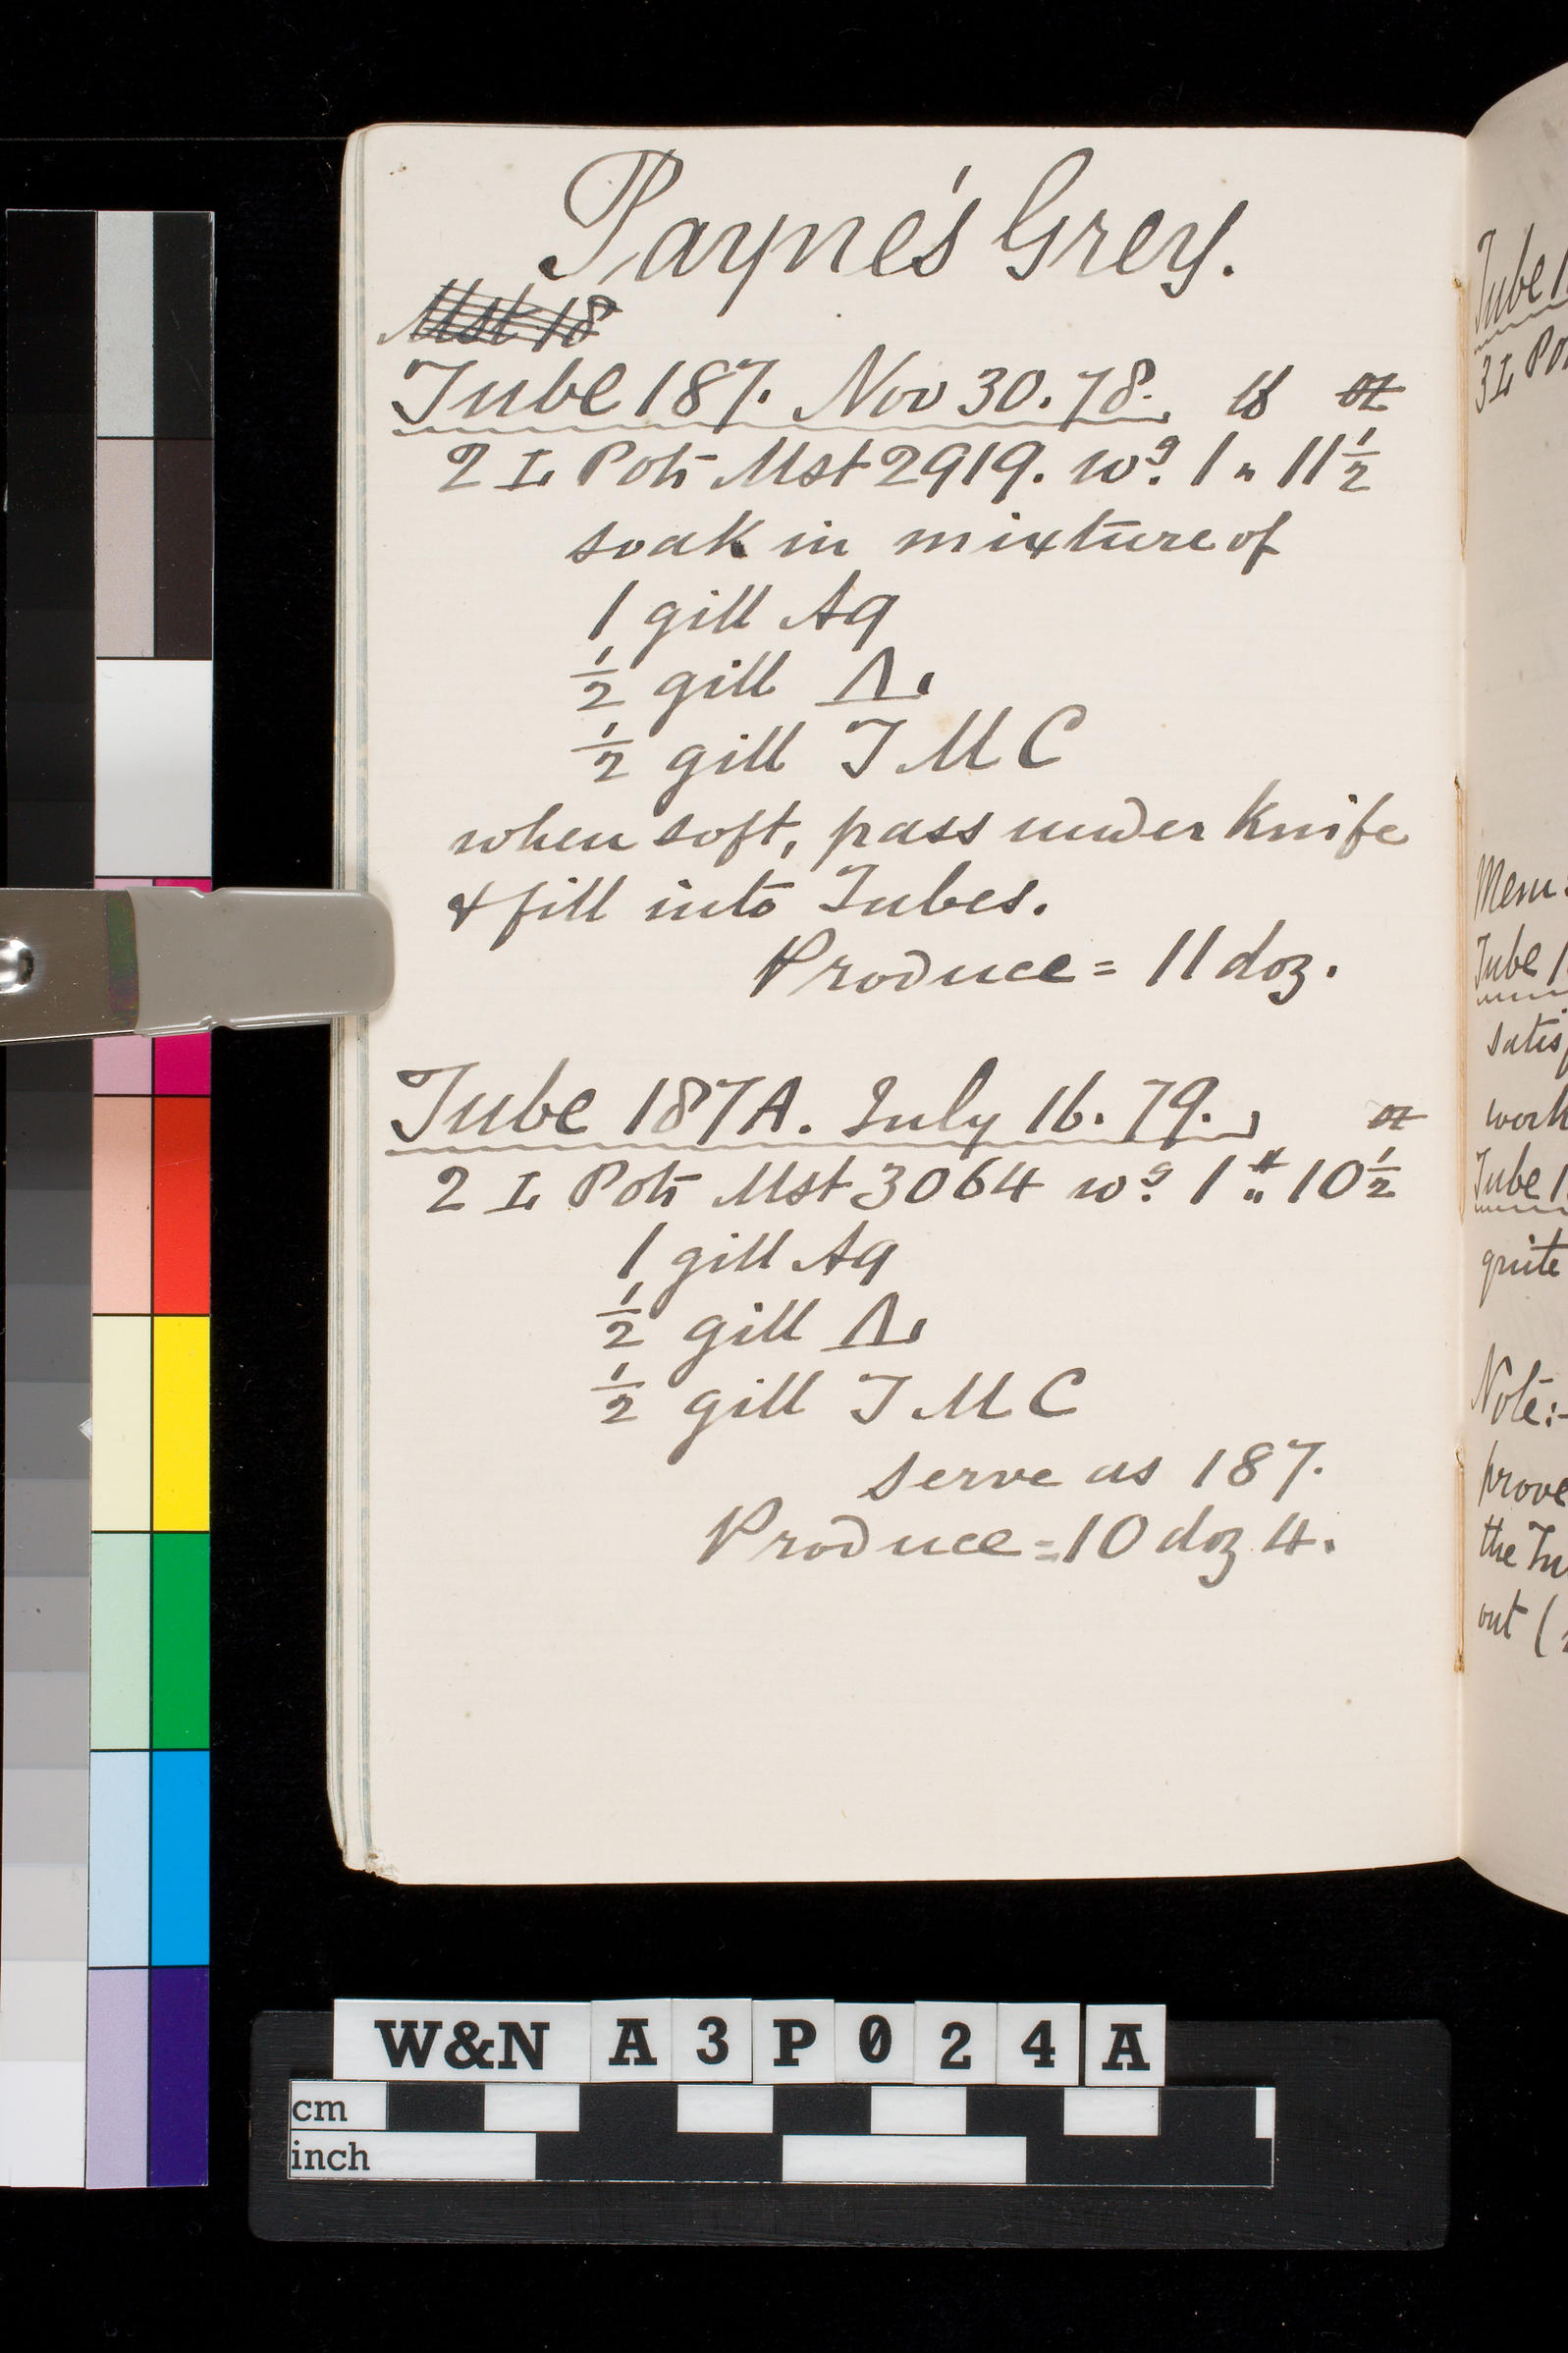 Payne's Grey.
Mst 18
Tube 187. Nov 30. 78. lb oz
2 L Pots Mst 2919. wg. 1 " 11 1/2
soak in mixture of
1 gill Aq
1/2 gill
1/2 gill T M C
when soft, pass under Knife
& fill into Tubes.
Produce = 11 doz.
Tube 187A. July 16. 79. oz
2 L Pots Mst 3064 wg. 1 # " 10 1/2
1 gill Aq
1/2 gill
1/2 gill T M C
serve as 187.
Produce = 10 doz 4.
Tube 1
3 L Po
Mem:
Tube 1
satis
work
Tube 1
quite
Note:-
prove
the Tu
out (
W&N A3P024A
cm
inch